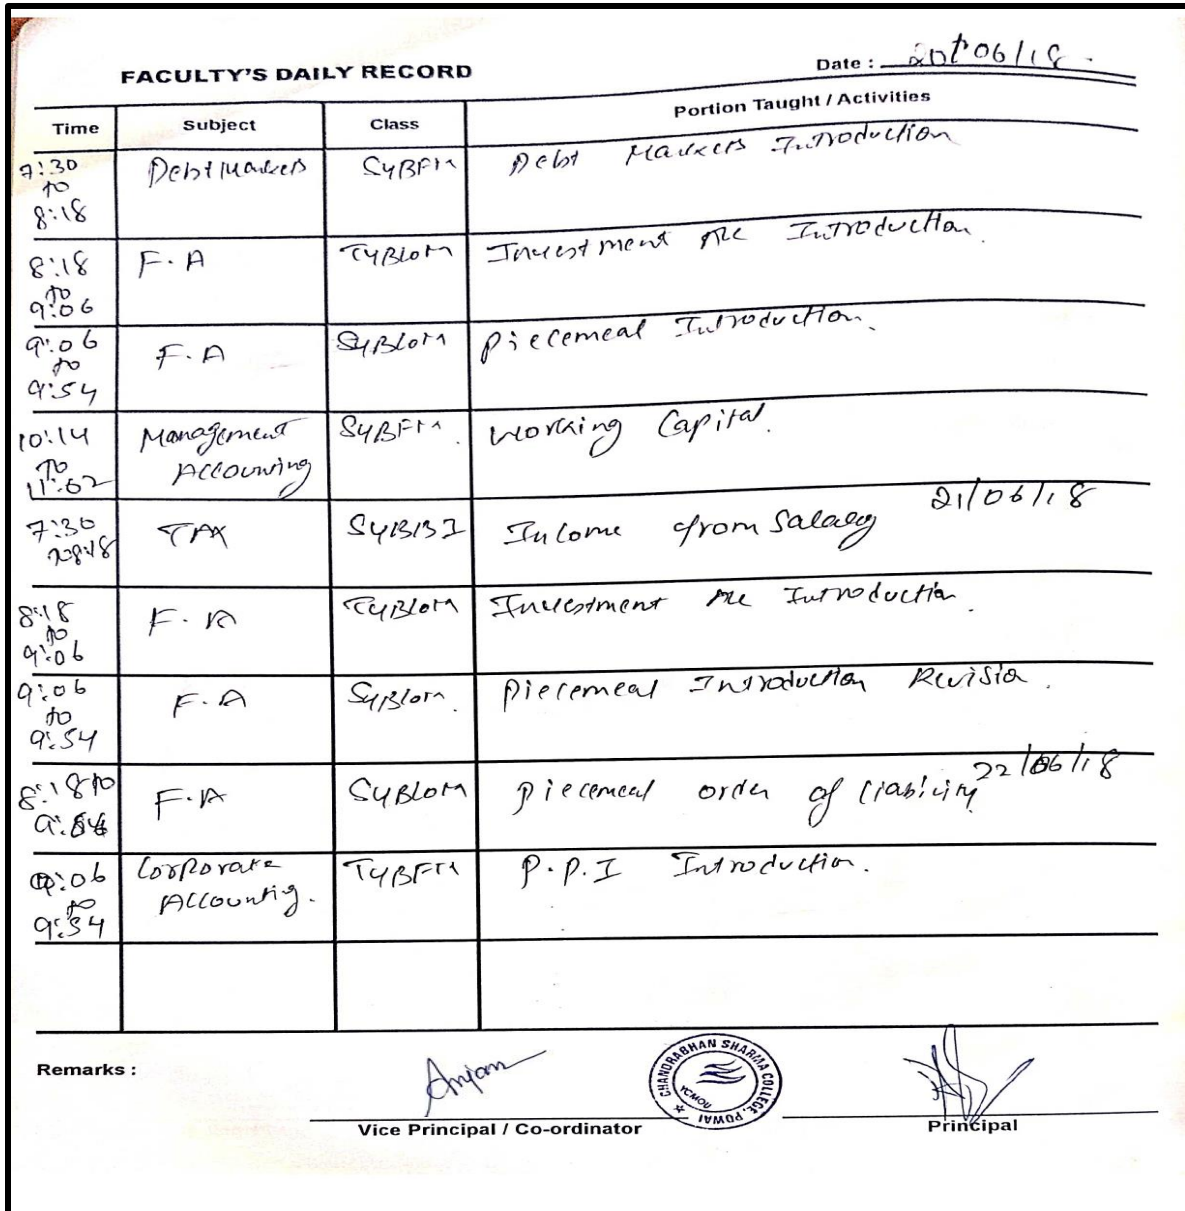 FACULTY'S DAILY RECORD
Date : 20/06/18
Time Subject Class Portion Taught / Activities
7:30 to 8:18 Debt Markets SYBFM Debt Markets Introduction
8:18 to 9:06 F.A TYBCOM Investment A/c Introduction
9:06 to 9:54 F.A SYBCOM Piecemeal Introduction.
10:14 to 11:02 Management Accounting SYBFM. Working Capital.
21/06/18
7:30 to 8:18 TAX SYBBI Income from Salary
8:18 to 9:06 F.A TYBCOM Investment A/c Introduction.
9:06 to 9:54 F.A SYBCOM. Piecemeal Introduction
22/06/18
8:18 to F.A SYBCOM Piecemeal order of liability
9:06 to 9:54 Corporate Accounting. TYBFM P.P.I Introduction.
Remarks :
CHANDRABHAN SHARMA COLLEGE, POWAI
YCMOU
Vice Principal / Co-ordinator
Principal